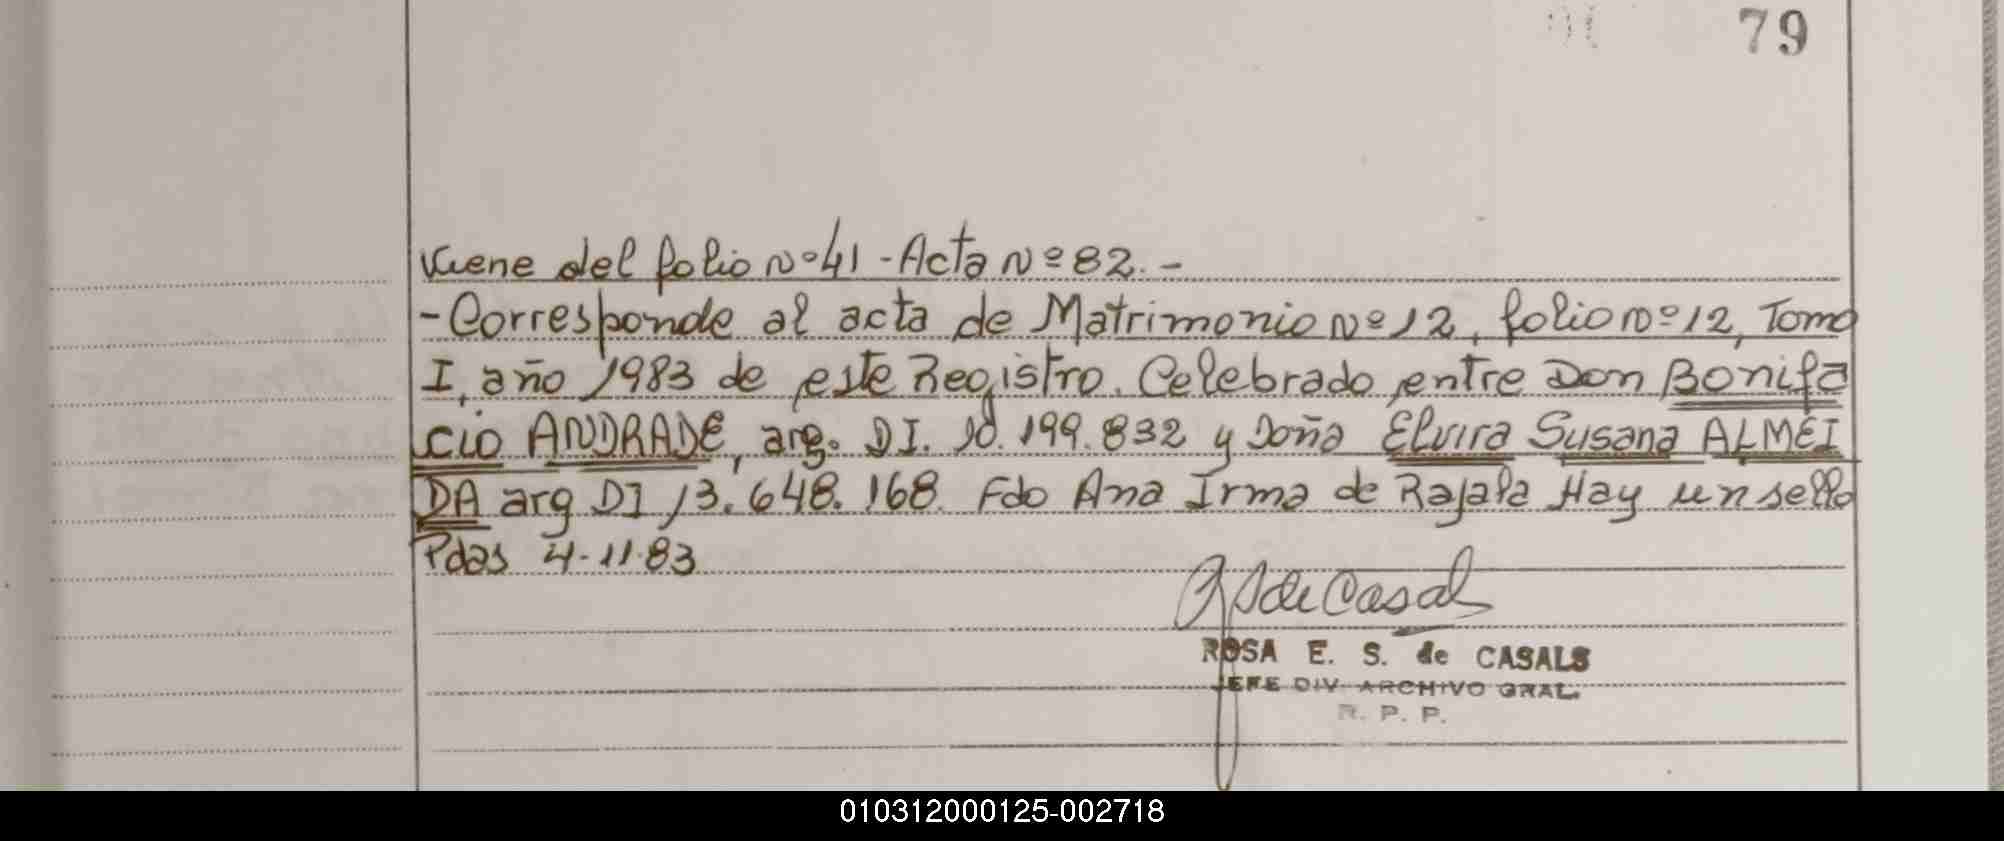 79
Viene del folio Nº 41 - Acta Nº 82. -
- Corresponde al acta de Matrimonio Nº 12, folio nº 12, Tomo
I, año 1983 de este Registro. Celebrado entre Don Bonifa
cio ANDRADE, arg. DI. 10.199.832 y Doña Elvira Susana ALMEI
DA arg DI 13.648.168. Fdo Ana Irma de Rajala Hay un sello
Pdas 4-11-83
de Casals
ROSA E. S. de CASALS
JEFE DIV. ARCHIVO GRAL.
R. P. P.
010312000125-002718